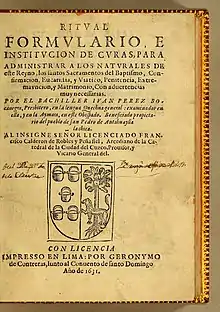 RITVAL
FORMVLARIO, E
INSTITVCION DE CVRAS, PARA
ADMINISTRAR A LOS NATVRALES DE
este Reyno, los santos Sacramentos del Baptismo, Con-
firmacion, Eucaristia, y Viatico, Penitencia, Extre-
mavncion, y Matrimonio, Con aduertencias
muy necessarias.
POR EL BACHILLER IVAN PEREZ BO-
canegra, Presbitero, en la lengua Quechua general: examinador en
ella, y en la Aymara, en este Obispado. Beneficiado propieta-
rio del pueblo de san Pedro de Antahuaylla
la chica.
AL INSIGNE SEÑOR LICENCIADO FRAN-
cisco Calderon de Robles y Peñafiel, Arcediano de la Ca-
tedral de la Ciudad del Cuzco, Prouisor, y
Vicario General del.
CON LICENCIA
IMPRESSO EN LIMA: POR GERONYMO
de Contreras, Iunto al Conuento de santo Domingo
Año de 1631.